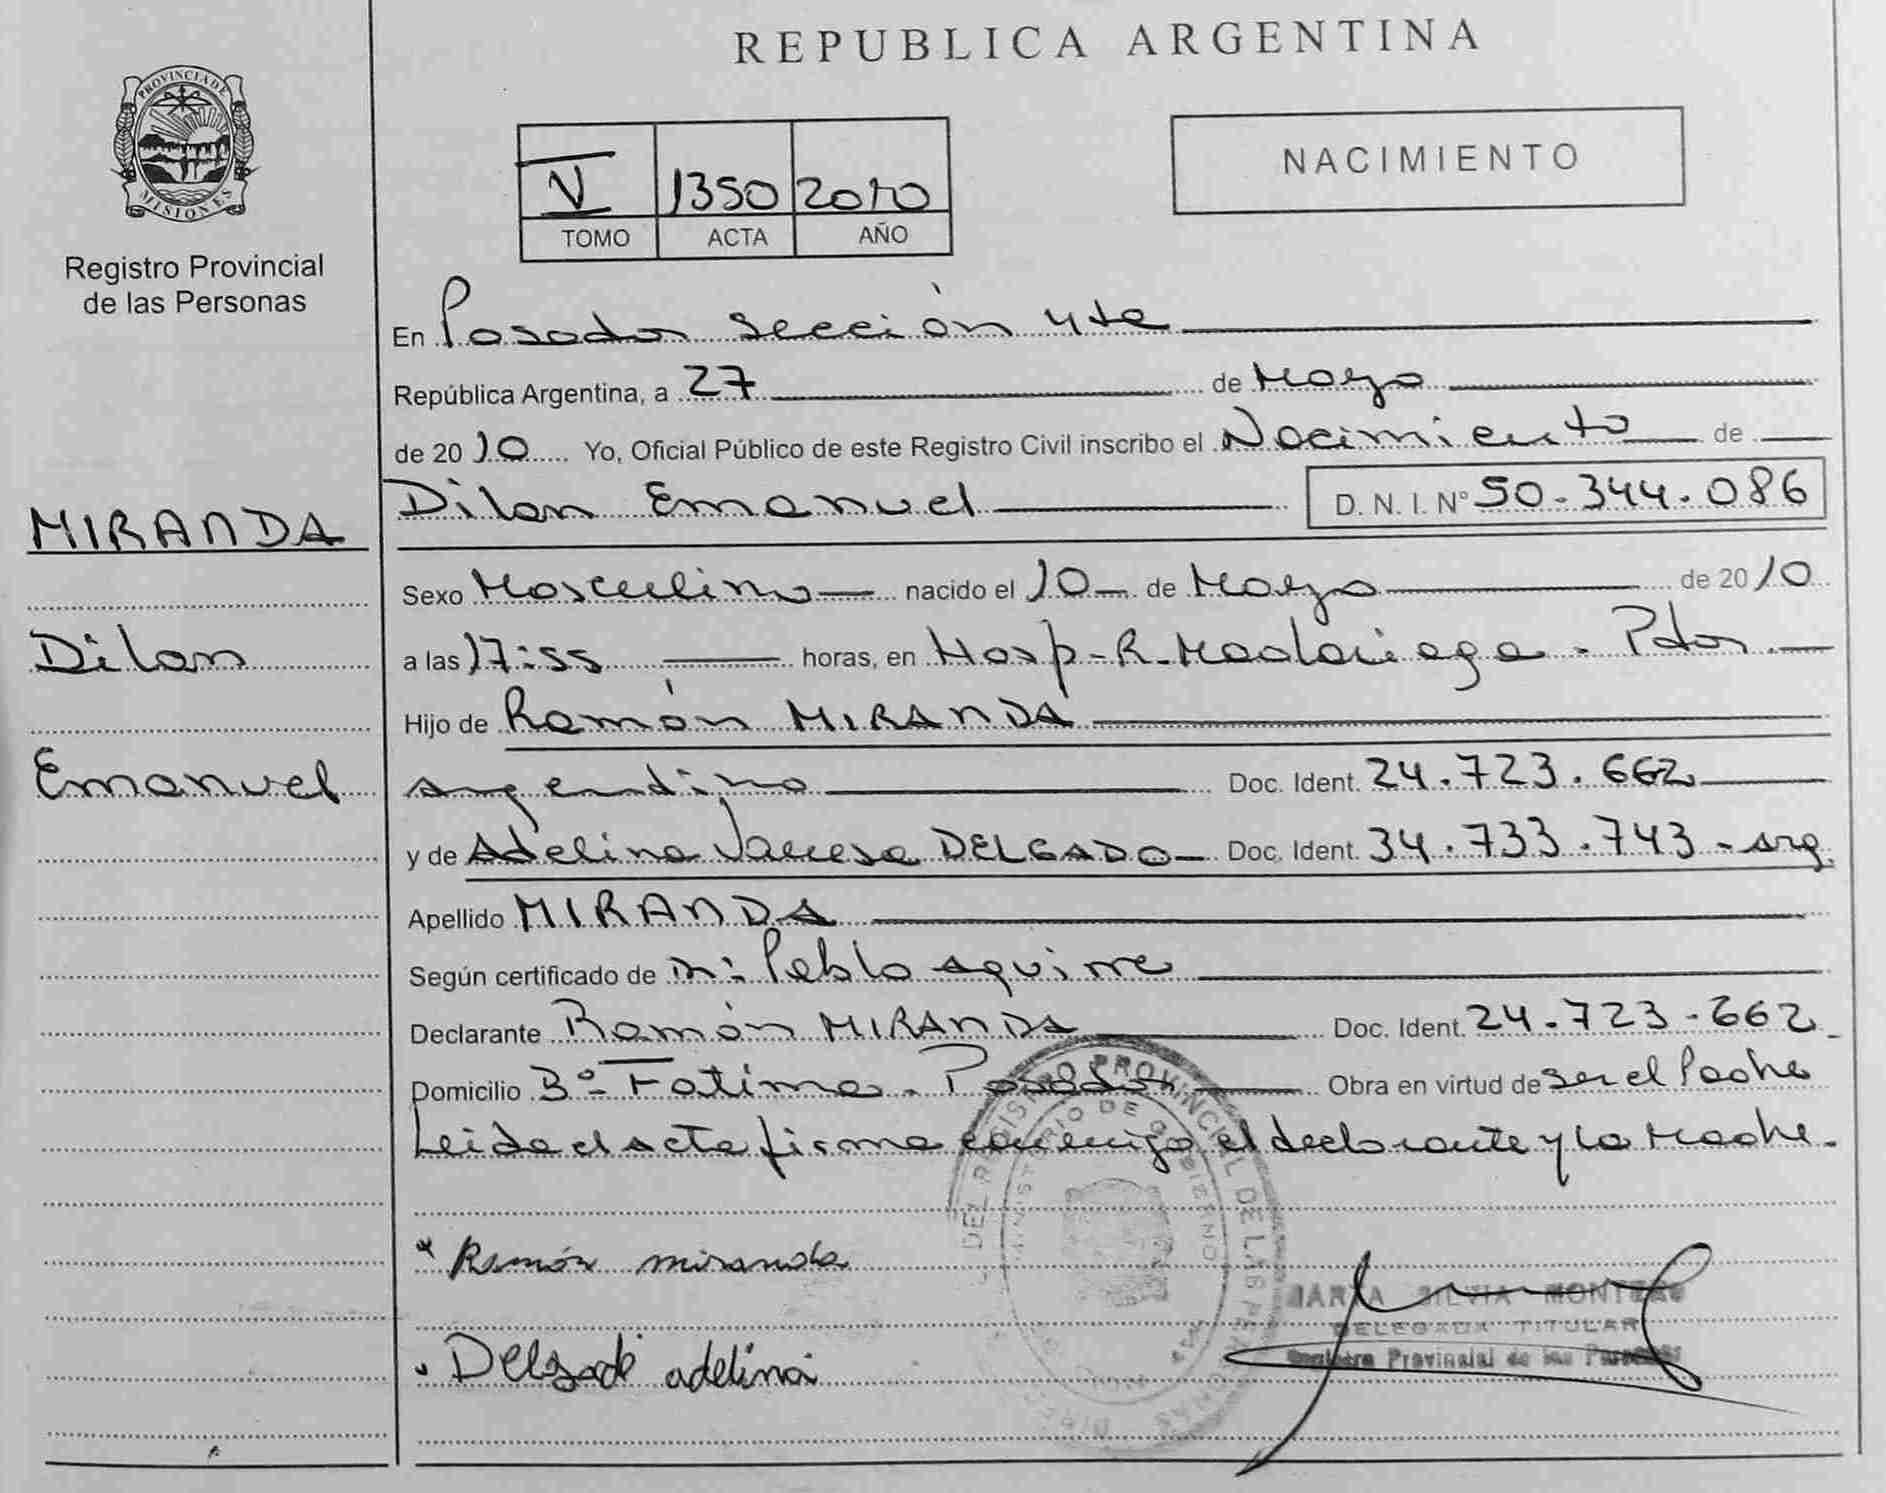 REPUBLICA ARGENTINA
PROVINCIA DE
MISIONES
Registro Provincial
de las Personas
V 1350 2010
TOMO ACTA AÑO
NACIMIENTO
En Posadas sección 4ta
República Argentina, a 27 de Mayo
de 2010 Yo, Oficial Público de este Registro Civil inscribo el Nacimiento de
Dilan Emanuel D. N. I. Nº 50.344.086
MIRANDA
Dilan
Emanuel
Sexo Masculino nacido el 10 de Mayo de 2010
a las 17:55 horas, en Hosp. R. Madariaga - Pdas.
Hijo de Ramón MIRANDA
argentino Doc. Ident. 24.723.662
y de Adelina Vanesa DELGADO Doc. Ident. 34.733.743 - arg.
Apellido MIRANDA
Según certificado de Pablo Aguirre
Declarante Ramón MIRANDA Doc. Ident. 24.723.662
Domicilio Bº Fatima - Posadas Obra en virtud de ser el Padre
Leida el acta firma conmigo el declarante y la Madre.
Ramón miranda
Delgado adelina
DEL REGISTRO PROVINCIAL DE LAS PERSONAS
MINISTERIO DE GOBIERNO
SILVIA
DELEGADA TITULAR
Registro Provincial de las Personas